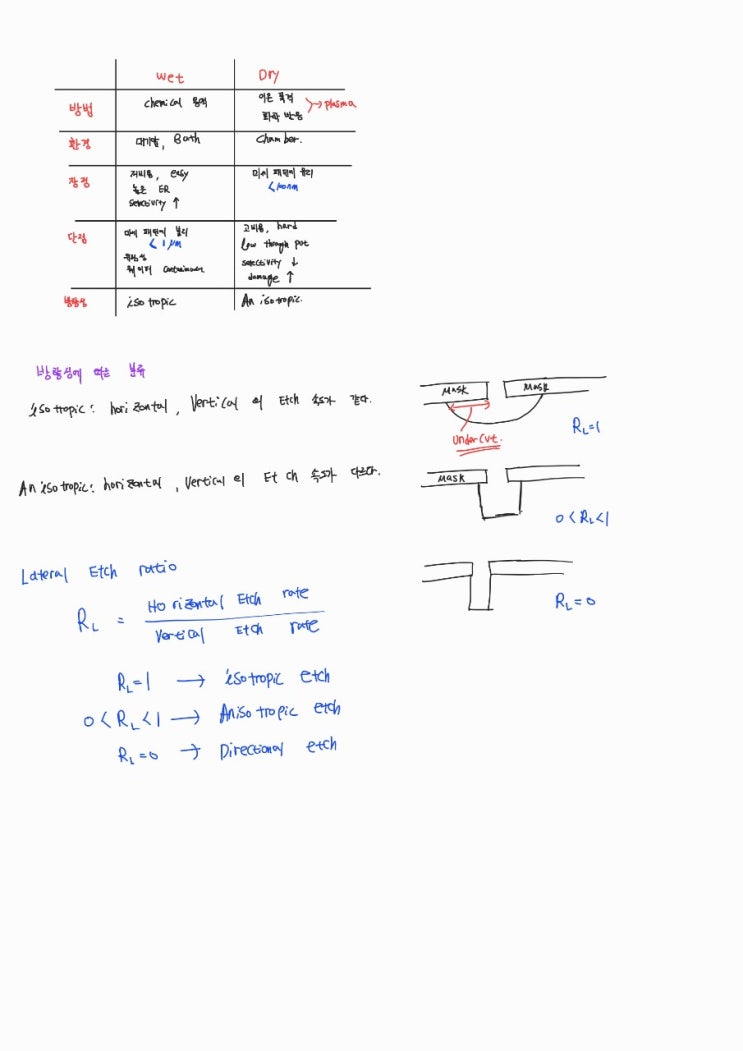 wet Dry
방법 chemical 용액 이온 폭격
화학 반응 → plasma
환경 대기압, Bath chamber.
장점 저비용, easy 미세 패턴에 유리
높은 ER <100nm
selectivity ↑
단점 미세 패턴에 불리 고비용, hard
< 1 μm low through put
위험성 selectivity ↓
웨이퍼 damage ↑
방향성 isotropic Anisotropic.
방향성에 따른 분류
isotropic: horizontal, Vertical 의 Etch 속도가 같다.
Mask Mask
Under Cut.
R_L=1
Anisotropic: horizontal, Vertical 의 Etch 속도가 다르다.
Mask
0 < R_L < 1
Lateral Etch ratio
R_L=0
R_L = Horizontal Etch rate
Vertical Etch rate
R_L=1 → isotropic etch
0 < R_L < 1 → Anisotropic etch
R_L=0 → Directional etch